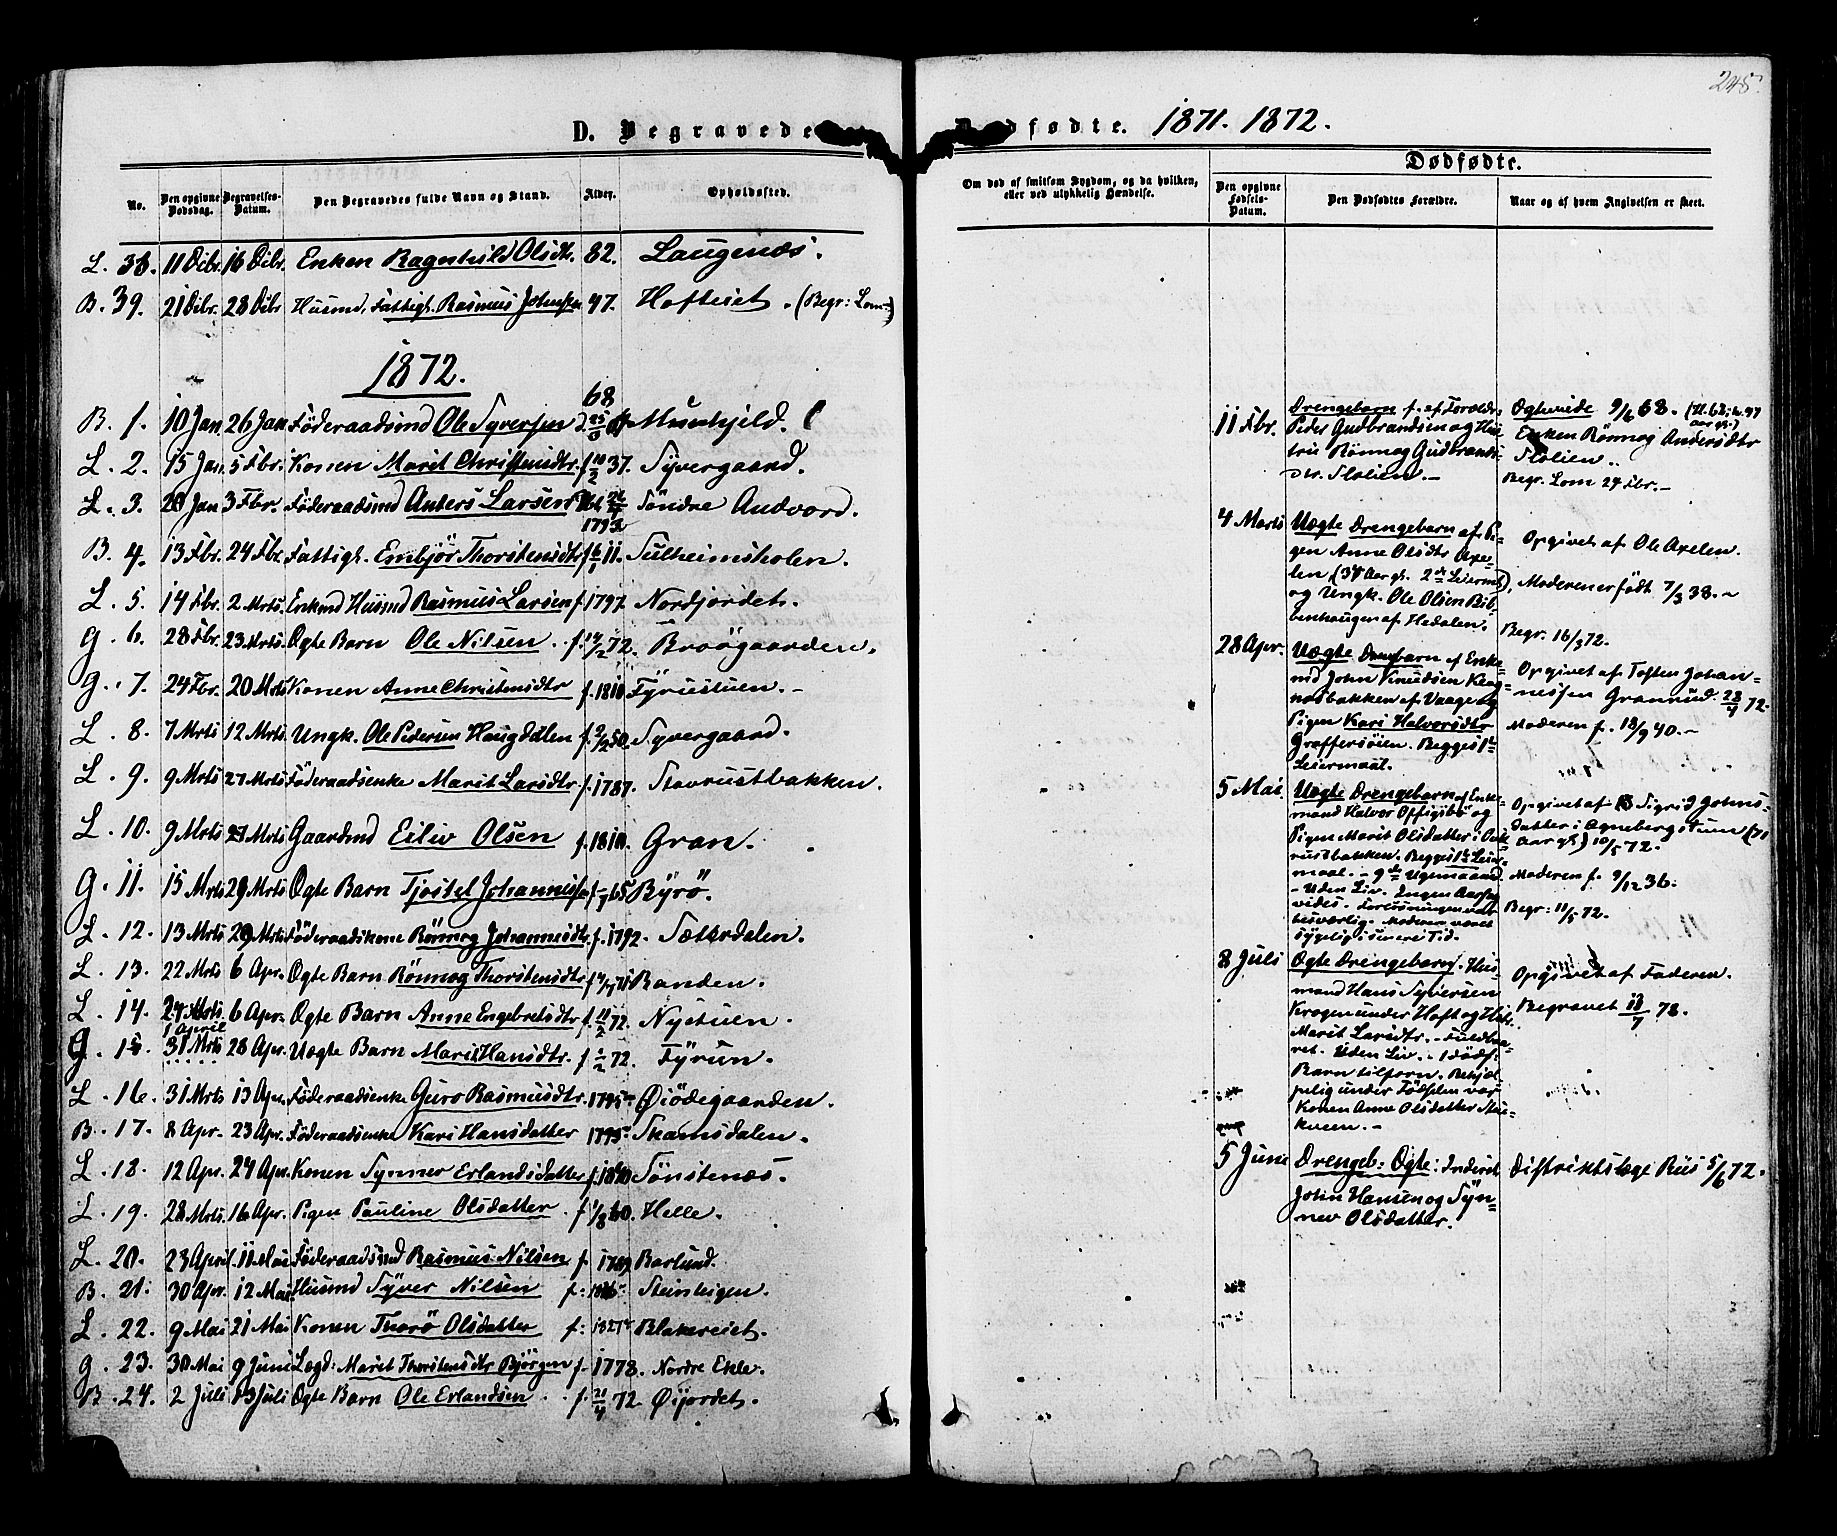 245.
D. Begravede
Dødfødte. 1871. 1872.
No.
Den opgivne Dødsdag.
Begravelses-Datum.
Den Begravedes fulde Navn og Stand.
Alder.
Opholdssted.
L. 38. 11 Dcbr. 16 Dcbr. Enken Ragnhild Olsdtr. 82. Laugenæs.
B. 39. 21 Dcbr. 28 Dcbr. Husmd, Fattigl. Rasmus Johnsen 47. Hofteiet. (Begr: Lom-)
1872.
68
B. 1. 10 Jan. 26 Jan. Föderaadsmd Ole Syversen Munkjeld.
L. 2. 15 Jan. 5 Fbr. Konen Marit Christensdtr. f. 10/2 37. Syvergaard.
L. 3. 20 Jan 3 Fbr. Föderaadsmd Anders Larsen Söndre Andvord.
1792
B. 4. 13 Fbr. 24 Fbr. Fattigl. Embjör Thorstensdtr 11. Sulheimsholen.
L. 5. 14 Fbr. 2 Mrts. Enkmd Husmd Rasmus Larsen f. 1797. Nordjordet.
G. 6. 28 Fbr. 23 Mrts. Ægte Barn Ole Nilsen. f. 14/2 72. Broögaarden.
G. 7. 24 Fbr. 20 Mrts Konen Anne Christensdtr f. 1810 Fyrustuen.-
L. 8. 7 Mrts 12 Mrts. Ungk. Ole Pedersen Haugdalen f. 9/2 50. Syvergaard.
L. 9. 9 Mrts 27 Mrts Föderaadsenke Marit Larsdtr. f. 1787. Stavrustbakken.
L. 10. 9 Mrts 27 Mrts Gaardmd Eiliv Olsen f. 1810. Gran.
G. 11. 15 Mrts 29 Mrts. Ægte Barn Tjostel Johannessen 65 Byrö.
L. 12. 13 Mrts 29 Mrts Föderaadskone Rönnog Johannesdtr. f. 1792. Sæterdalen.
L. 13. 22 Mrts 6 Apr. Ægte Barn Rönnog Thorstensdtr Randen.
L. 14. 24 Mrts. 6 Apr. Ægte Barn Anne Engebretsdtr f. 11/2 72. Nystuen.
1 April
G. 15. 31 Mrts 28 Apr. Uægte Barn Marit Hansdtr. f. 72. Fyrun.
L. 16. 31 Mrts 13 Apr. Föderaadsenke Guro Rasmusdtr. 1795 Øiödegaarden.
B. 17. 8 Apr. 23 Apr. Föderaadsenke Kari Hansdatter 1795 Skamsdalen.
L. 18. 12 Apr. 24 Apr. Konen Synnev Erlandsdatter f. 1840 Sönstenæs.
L. 19. 28 Mrts. 16 Apr. Pigen Pauline Olsdatter f 1/8 60. Helle.
L. 20. 23 April. 11 Mai Föderaadsmd Rasmus Nilsen f. 1789 Barlund.
B. 21. 30 Apr. 12 Mai Husmd Syver Nilsen f: Steinhigen.
L. 22. 9 Mai 21 Mai Konen Thorö Olsdatter f: 1827 Blakereiet.
G. 23. 30 Mai 9 Juni Lægd: Marit Thorstensdtr Bjørgen f. 1778. Nordre Ekle.
B. 24. 2 Juli 13 Juli Ægte Barn Ole Erlandsen. f. 21/4 72. Øijordet.
Om død af smitsom Sygdom, og da hvilken,
eller ved ulykkelig Hændelse.
Dødfødte.
Den opgivne Fødsels-Datum.
Den Dødfødtes Forældre.
Naar og af hvem Angivelsen er skeet.
11 Fbr. Drengebarn f. af Foreldr:
Peder Gudbrandsen og Hus-
tru Rönnog Gudbrands-
dtr. Stolien.-
Ægteviede 9/6 68. (Nl. 68, k. 47
aar gl.)
Enken Rönnog Andersdtr
Stolien.
Begr. Lom 24 Fbr.-
4 Marts Uægte Drengebarn af Pi-
gen Anne Olsdtr Axe-
len (34 Aar gl. 2det Leiermd),
og Ungk. Ole Olsen Bib-
benhaugen af Hedalen.
Opgivet af Ole Axelen.
Moderen er født 7/3 38.-
Begr. 16/3 72.
28 Apr. Uægte Drengebarn af Enke-
md John Knudsen Klag-
nosbakken af Vaage og
Pigen Kari Halvorsdtr
Graffersöien. Begges 1ste
Leiermaal.
Opgivet af Tosten Johan-
nessen Granrud. 28/4 72.
Moderen f. 18/9 40.-
5 Mai Uægte Drengebarn af Enke-
mand Halvor Offigsbø og
Pigen Marit Olsdatter i Sta-
vrustbakken. Begges 1ste Leier-
maal. - 9de Ugemaaned
- Uden Liv. Ingen Aarsag
vides. Forlösningen var
besværlig. Moderen været
sygelig i sin erei Tid.
Opgivet af Sigrid Johns-
datter i Agnebergstuen (71
Aar gl.) 10/5 72.
Moderen f. 9/12 36.
Begr: 11/5 72.
8 Juli Ægte Drengebarn. Hus-
mand Hans Syversen
Krogen under Hoft og Hstr.
Marit Larsdtr. - Fuldbaa-
ret. Uden Liv. - 1 dødf.
Barn tilforn. Behjæl-
pelig under Födselen var
Konen Anne Olsdatter Stei-
kveen.-
Opgivet af Faderen.
Begravet 13/7 72.
5 June Drengeb: Ægte: Inderst
John Hansen og Syn-
nev Olsdatter.
Distriktslæge Riis 5/6 72.